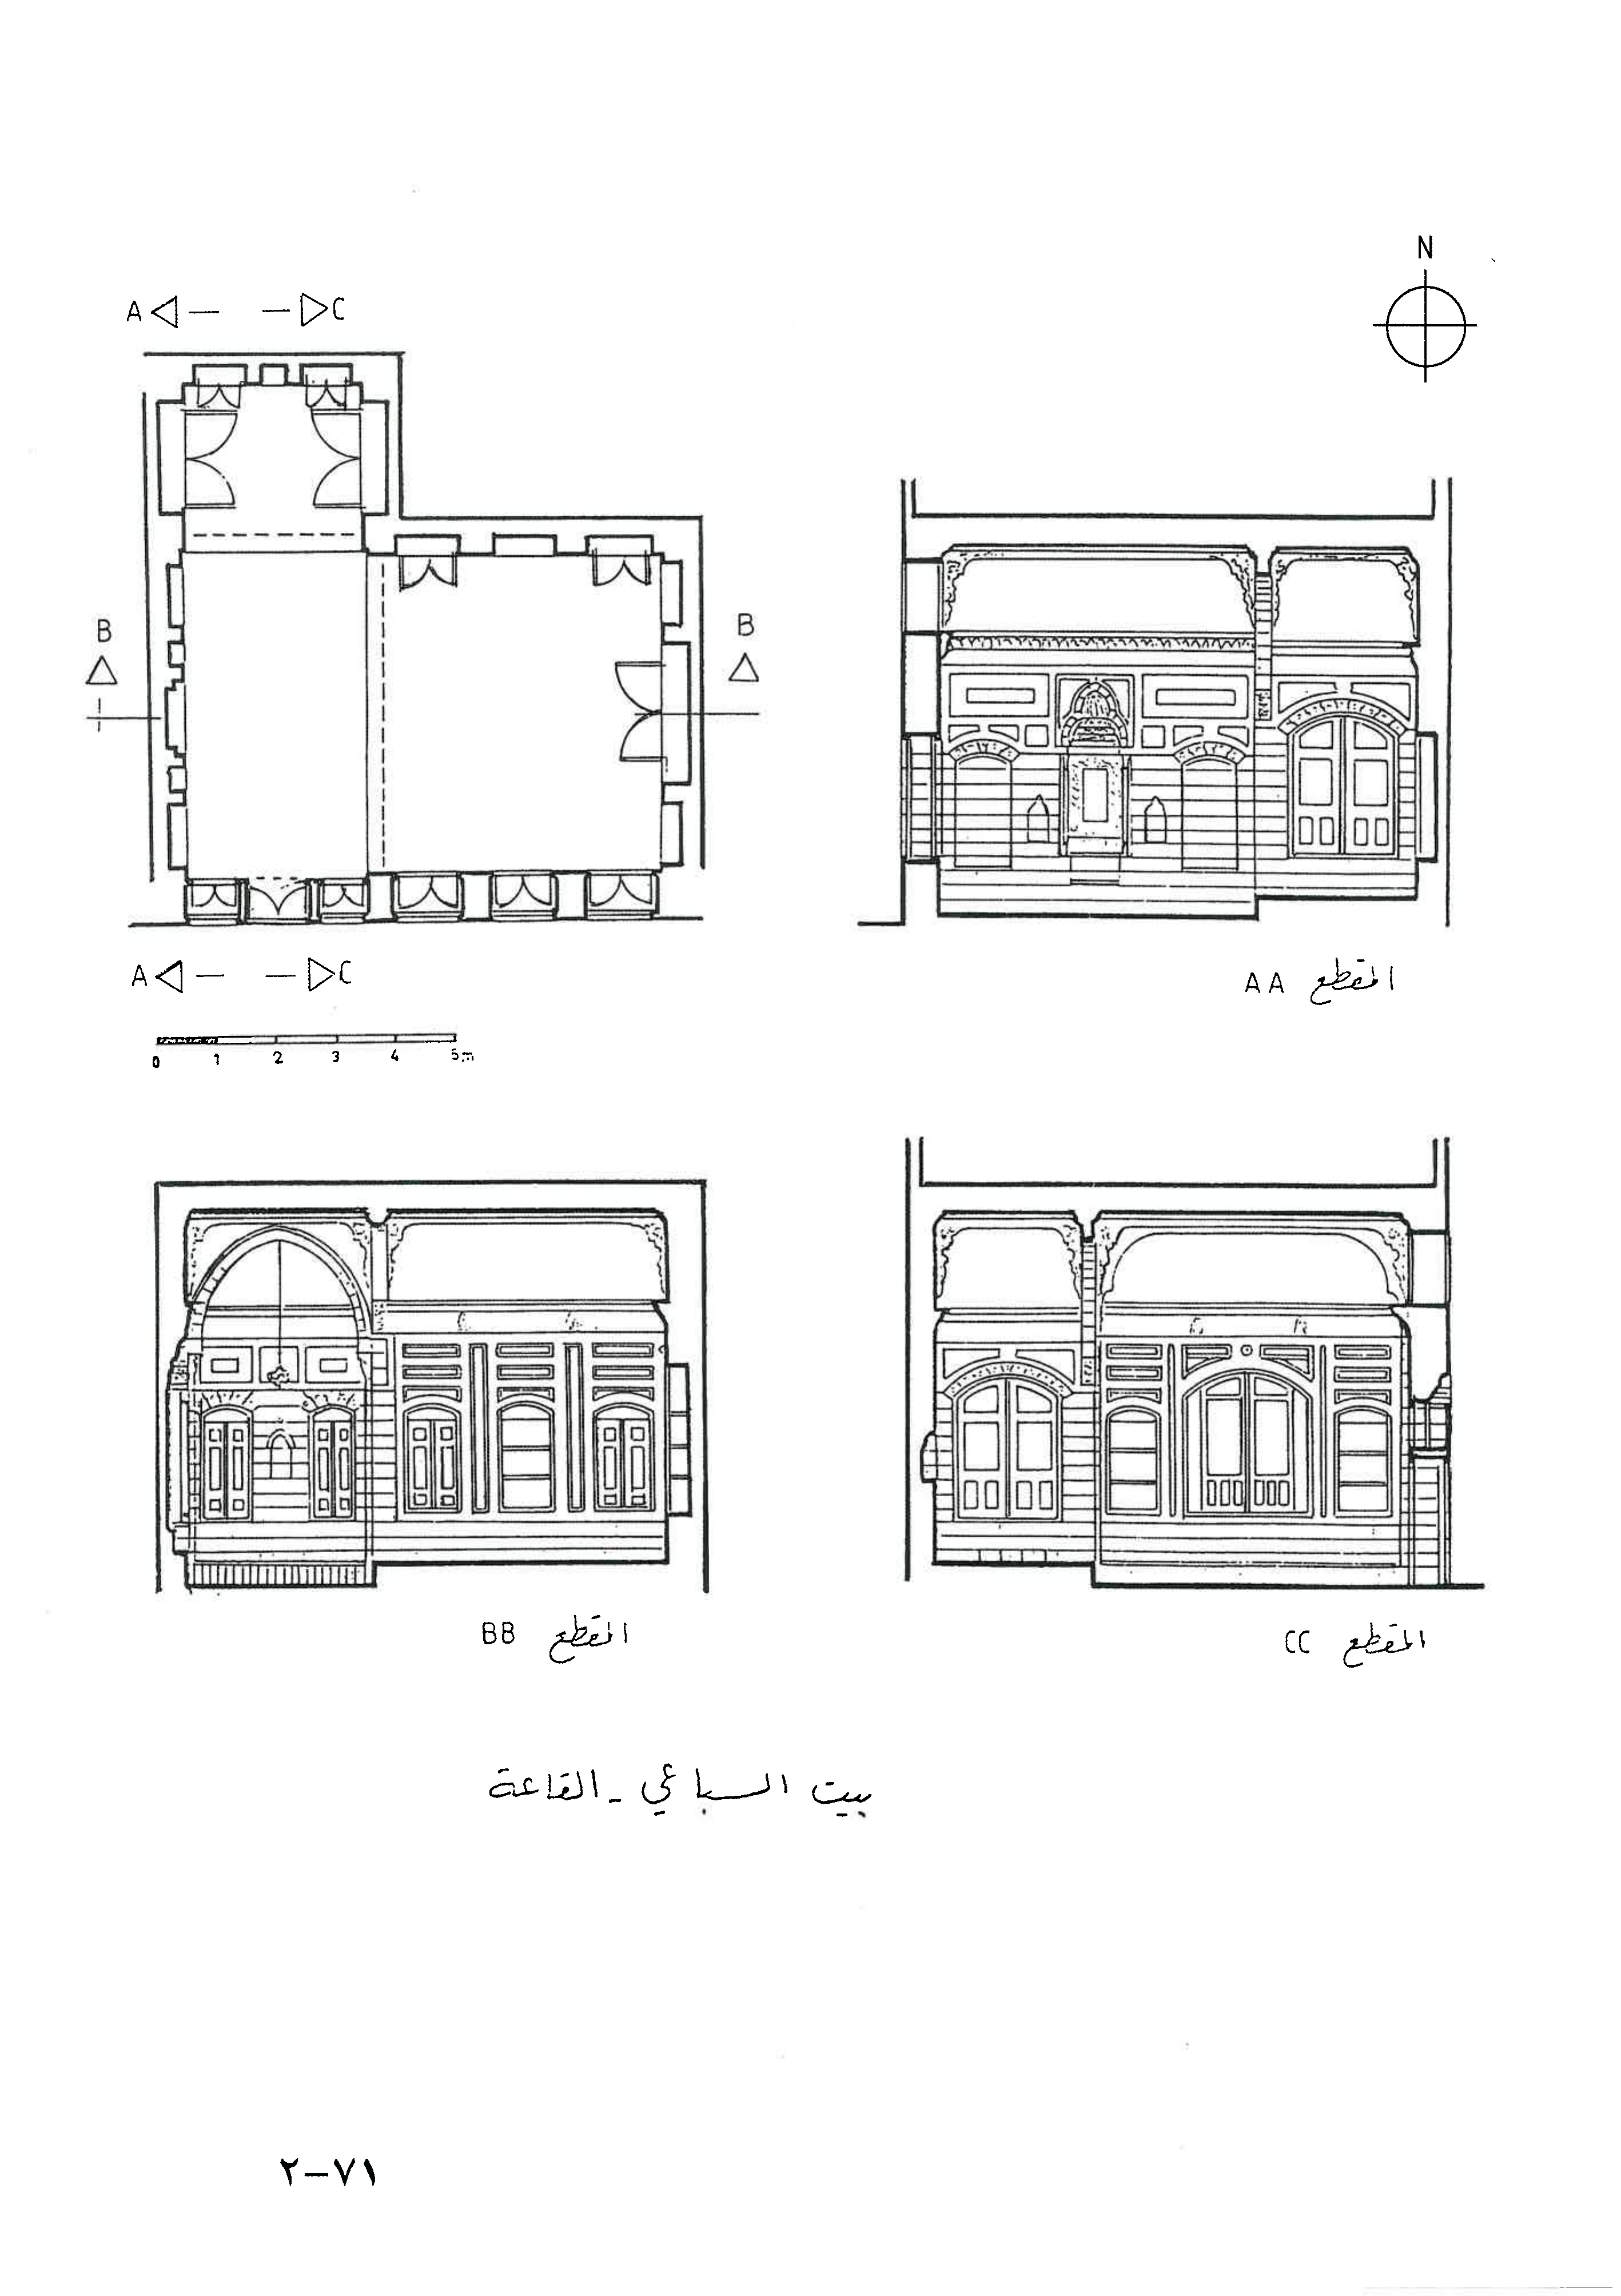 N
A C
B B
A C
0 1 2 3 4 5m
المقطع AA
المقطع BB
المقطع CC
بيت السباعي - القاعة
٢-٧١